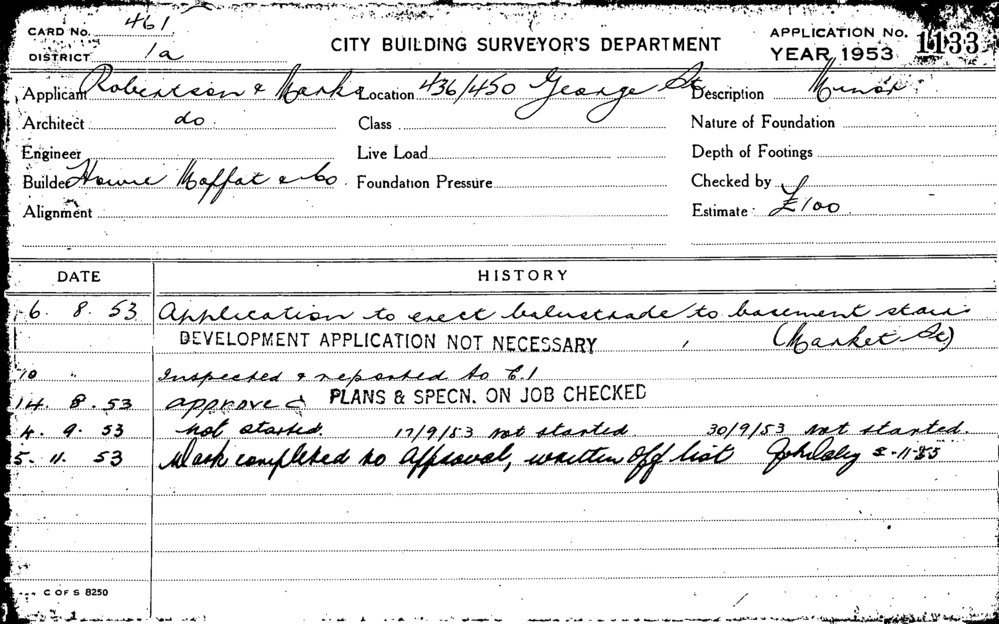 CARD No. 461 CITY BUILDING SURVEYOR'S DEPARTMENT APPLICATION No. 1133
DISTRICT 1a YEAR 1953
Applicant Robertson & Marks Location 436/450 George St Description Minor
Architect do Class Nature of Foundation
Engineer Live Load Depth of Footings
Builder Howie Moffat & Co. Foundation Pressure Checked by
Alignment Estimate £100
DATE HISTORY
6. 8. 53 Application to erect balustrade to basement stairs
DEVELOPMENT APPLICATION NOT NECESSARY (Market St)
10 " Inspected & reported to C.I
14. 8. 53 approved PLANS & SPECN. ON JOB CHECKED
4. 9. 53 not started. 17/9/53 not started 30/9/53 not started.
5. 11. 53 Work completed no approval, written off list
C OF S 8250